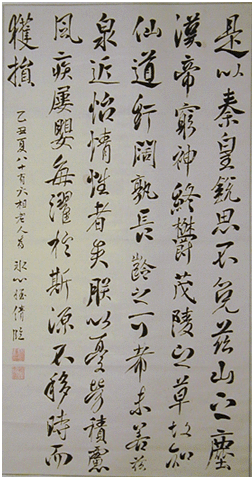 是以秦皇銳思不免茲山之塵
漢帝窮神終鬱茂陵之草故知
仙道行闊孰長齡之可希未若茲
泉近怡情性者矣朕以憂勞積慮
風疾屢嬰每濯於斯源不移時而
獲損
乙丑夏八十有六老人為冰心臨